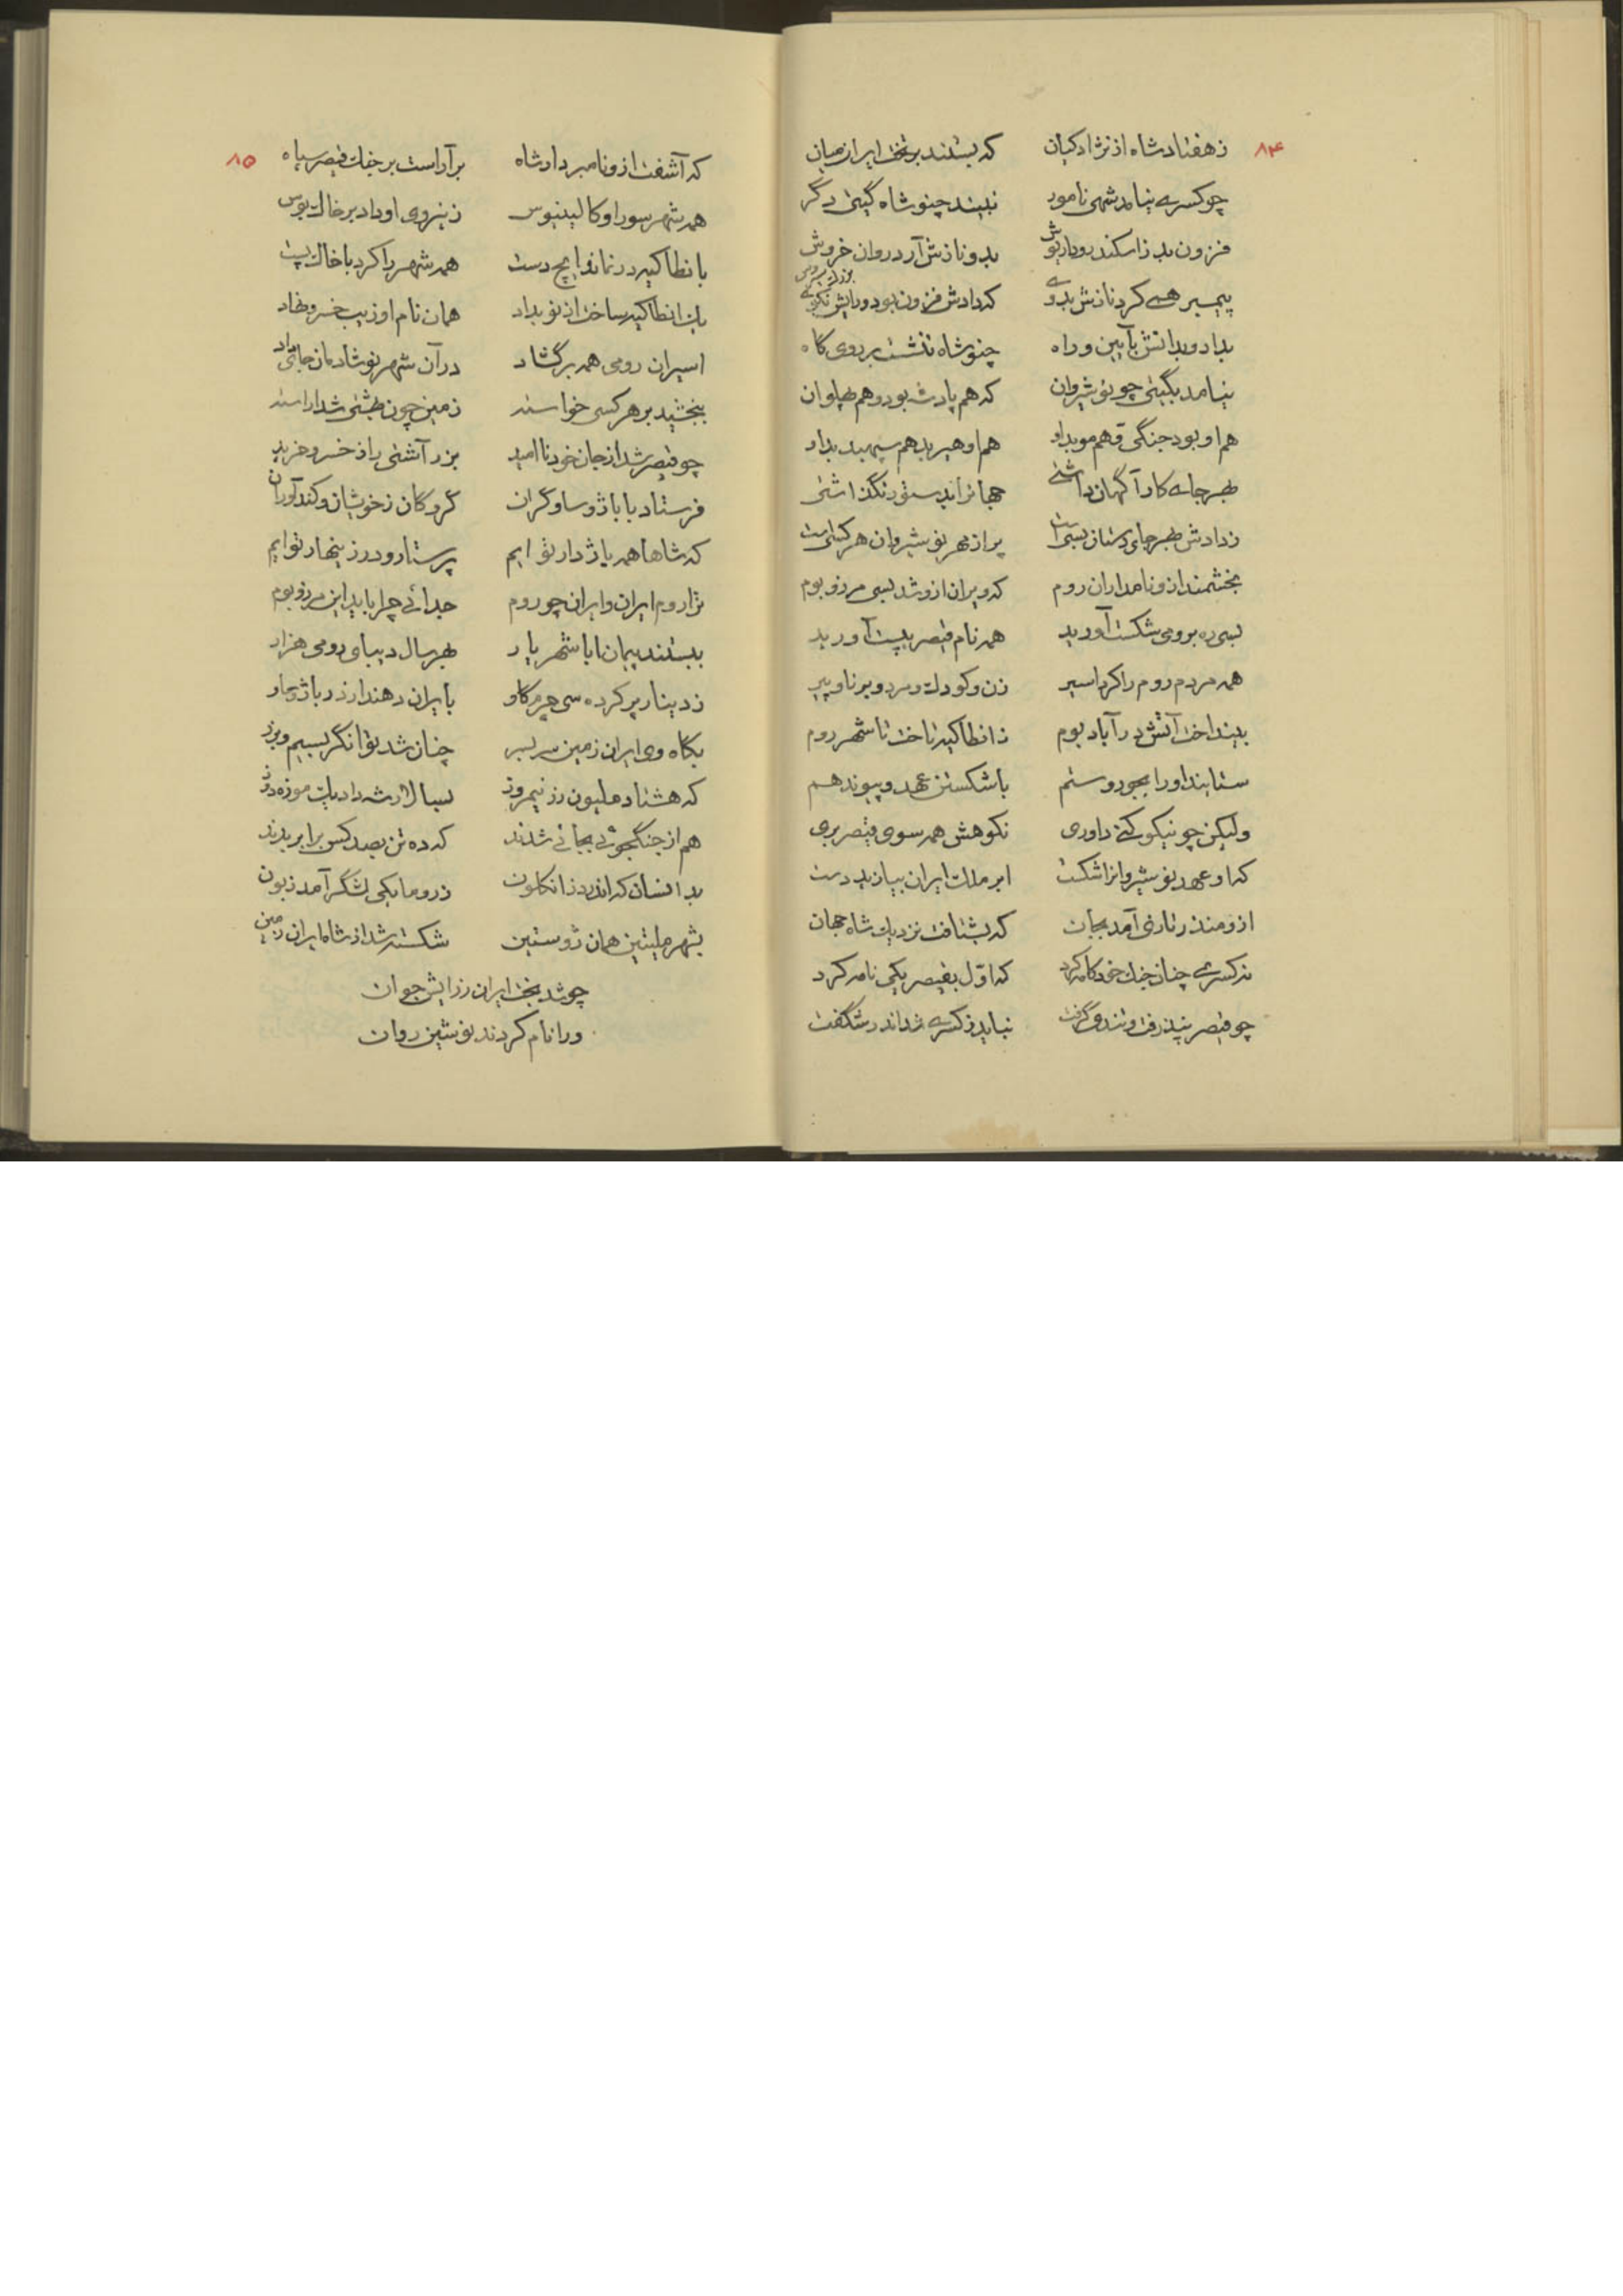 ۸۴
ز هفتاد شاه از نژاد کیان که بستند بر تخت ایران میان
چو کسری نیامد شهی نامور نبیند چنو شاه گیتی دگر
فزون بد ز اسکندر و داریوش بدو نازش آرد روان خروش
پیمبر همی کرد نازش بدوی که دادش فزون بود و رایش نکوی
بداد و بدانش بآیین و راه چنو شاه ننشست بر روی گاه
نیامد بگیتی چو نوشیروان که هم پادشه بود و هم پهلوان
هم او بود جنگی و هم موبداو هم او هیربد هم سپهبد بداد
بهرجای کارآگهان داشتی جهانرا بدستور نگذاشتی
ز دادش بهرجای دستان بسی است پر از مهر نوشیروان هر کسی است
بخشمند ازو نامداران روم که ویران ازو شد بسی مرز و بوم
بسی ره برومی شکست آورید همه نام قیصر بپست آورید
همه مردم روم را کرد اسیر زن و کودک و مرد و برنا و پیر
بینداخت آتش در آباد بوم ز انطاکیه تاخت تا شهر روم
ستایند او را بجور و ستم باشکستن عهد و پیوند هم
ولیکن چو نیکو کنی داوری نکوهش همه سوی قیصر بری
که او عهد نوشیروانرا شکست ابر ملک ایران بیازید دست
ازو منذر تازی آمد بجان که بشتافت نزدیک شاه جهان
نه کسری چنان جنگ خودکامه کرد که اول بقیصر یکی نامه کرد
چو قیصر نپذرفت و تندی گرفت نباید ز کسری شد اندر شگفت
۸۵
که آشفت ازو نامبردار شاه برآراست بر جنگ قیصر سپاه
همه شهر سورا و کالینیوس ز نیروی او داد بر خاک بوس
بانطاکیه در نماند ایچ دست همه شهر را کرد با خاک پست
یک انطاکیه ساخت از نو بداد همان نام او زیب خسرو نهاد
اسیران رومی همه برگشاد در آن شهر نو شادمان جای داد
ببخشید بر هر کسی خواسته زمین چون بهشتی شد آراسته
چو قیصر شد از جان خود ناامید بزر آشتی را ز خسرو خرید
فرستاد با باژ و ساو گران گروگان ز خویشان و کندآوران
که شاها همه باژدار تو ایم پرستار و در زینهار توایم
نژاد روم ایران و ایران چو روم جدائی چرا باید این مرز و بوم
ببستند پیمان ابا شهریار بهر سال دیبای رومی هزار
ز دینار پر کرده سی چرم گاو بایران دهند از در باژ و ساو
بگاه وی ایران زمین سر بسر چنان شد توانگر بسیم و بزر
که هشتاد ملیون زر نیمروز بسالار شه داد یک موزه دوز
هم از جنگجوئی بجائی شدند که ده تن بصد کس برابر بدند
بد انسان که اندر دز انکلون ز روما یکی لشگر آمد زبون
بشهر ملیتین همان ژوستین شکسته شد از شاه ایران زمین
چو شد بخت ایران ز رایش جوان
ورا نام کردند نوشین روان